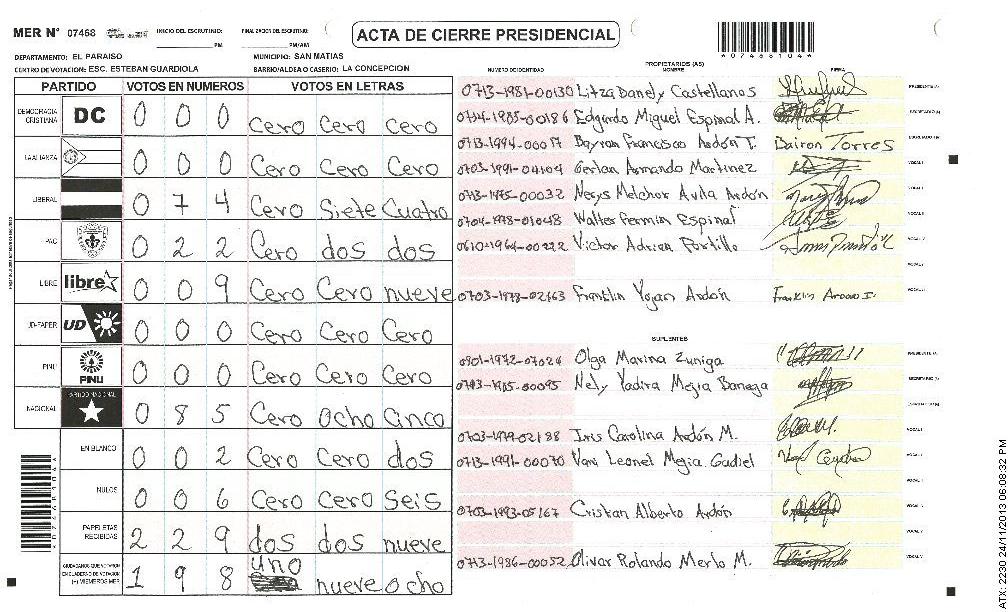 MER N° 07468 INICIO DEL ESCRUTINIO: PM FINALIZACION DEL ESCRUTINIO: PM/AM
ACTA DE CIERRE PRESIDENCIAL
*07468104*
DEPARTAMENTO: EL PARAISO MUNICIPIO: SAN MATIAS
CENTRO DE VOTACION: ESC. ESTEBAN GUARDIOLA BARRIO/ALDEA O CASERIO: LA CONCEPCION
PARTIDO VOTOS EN NUMEROS VOTOS EN LETRAS
DEMOCRACIA CRISTIANA DC 0 0 0 Cero Cero Cero
LA ALIANZA 0 0 0 Cero Cero Cero
LIBERAL 0 7 4 Cero Siete Cuatro
PAC 0 2 2 Cero dos dos
LIBRE libre 0 0 9 Cero Cero nueve
UD-FAPER UD 0 0 0 Cero Cero Cero
PINU PINU 0 0 0 Cero Cero Cero
NACIONAL PARTIDO NACIONAL 0 8 5 Cero Ocho Cinco
EN BLANCO 0 0 2 Cero Cero dos
NULOS 0 0 6 Cero Cero Seis
PAPELETAS RECIBIDAS 2 2 9 dos dos nueve
CIUDADANOS QUE VOTARON EN CUADERNO DE VOTACION (+) MIEMBROS MER 1 9 8 uno nueve ocho
NUMERO DE IDENTIDAD PROPIETARIOS (AS) NOMBRE FIRMA
0713-1981-00130 Litza Danely Castellanos PRESIDENTE (A)
0704-1985-00186 Edgardo Miguel Espinal A. SECRETARIO (A)
0713-1994-00017 Bayron Francisco Ardón T. Bairon Torres ESCRUTADOR (A)
0703-1991-04104 Gerlan Armando Martinez VOCAL I
0713-1975-00032 Nerys Melchor Avila Ardón VOCAL II
0704-1978-01048 Walter Fermin Espinal VOCAL III
0610-1964-00222 Victor Adrian Portillo VOCAL IV
VOCAL V
0703-1978-02663 Franklin Yojan Ardón Franklin Ardon I.
SUPLENTES
0801-1972-07024 Olga Marina Zuniga PRESIDENTE (A)
0703-1985-00095 Nely Yadira Mejia Banega SECRETARIO (A)
ESCRUTADOR (A)
0703-1979-02188 Iris Carolina Ardón M. VOCAL I
0713-1991-00070 Yovani Leonel Mejia Gudiel
0703-1993-05167 Cristian Alberto Ardón
0713-1986-00052 Olivar Rolando Merlo M.
ATX: 2230 24/11/2013 06:08:32 PM